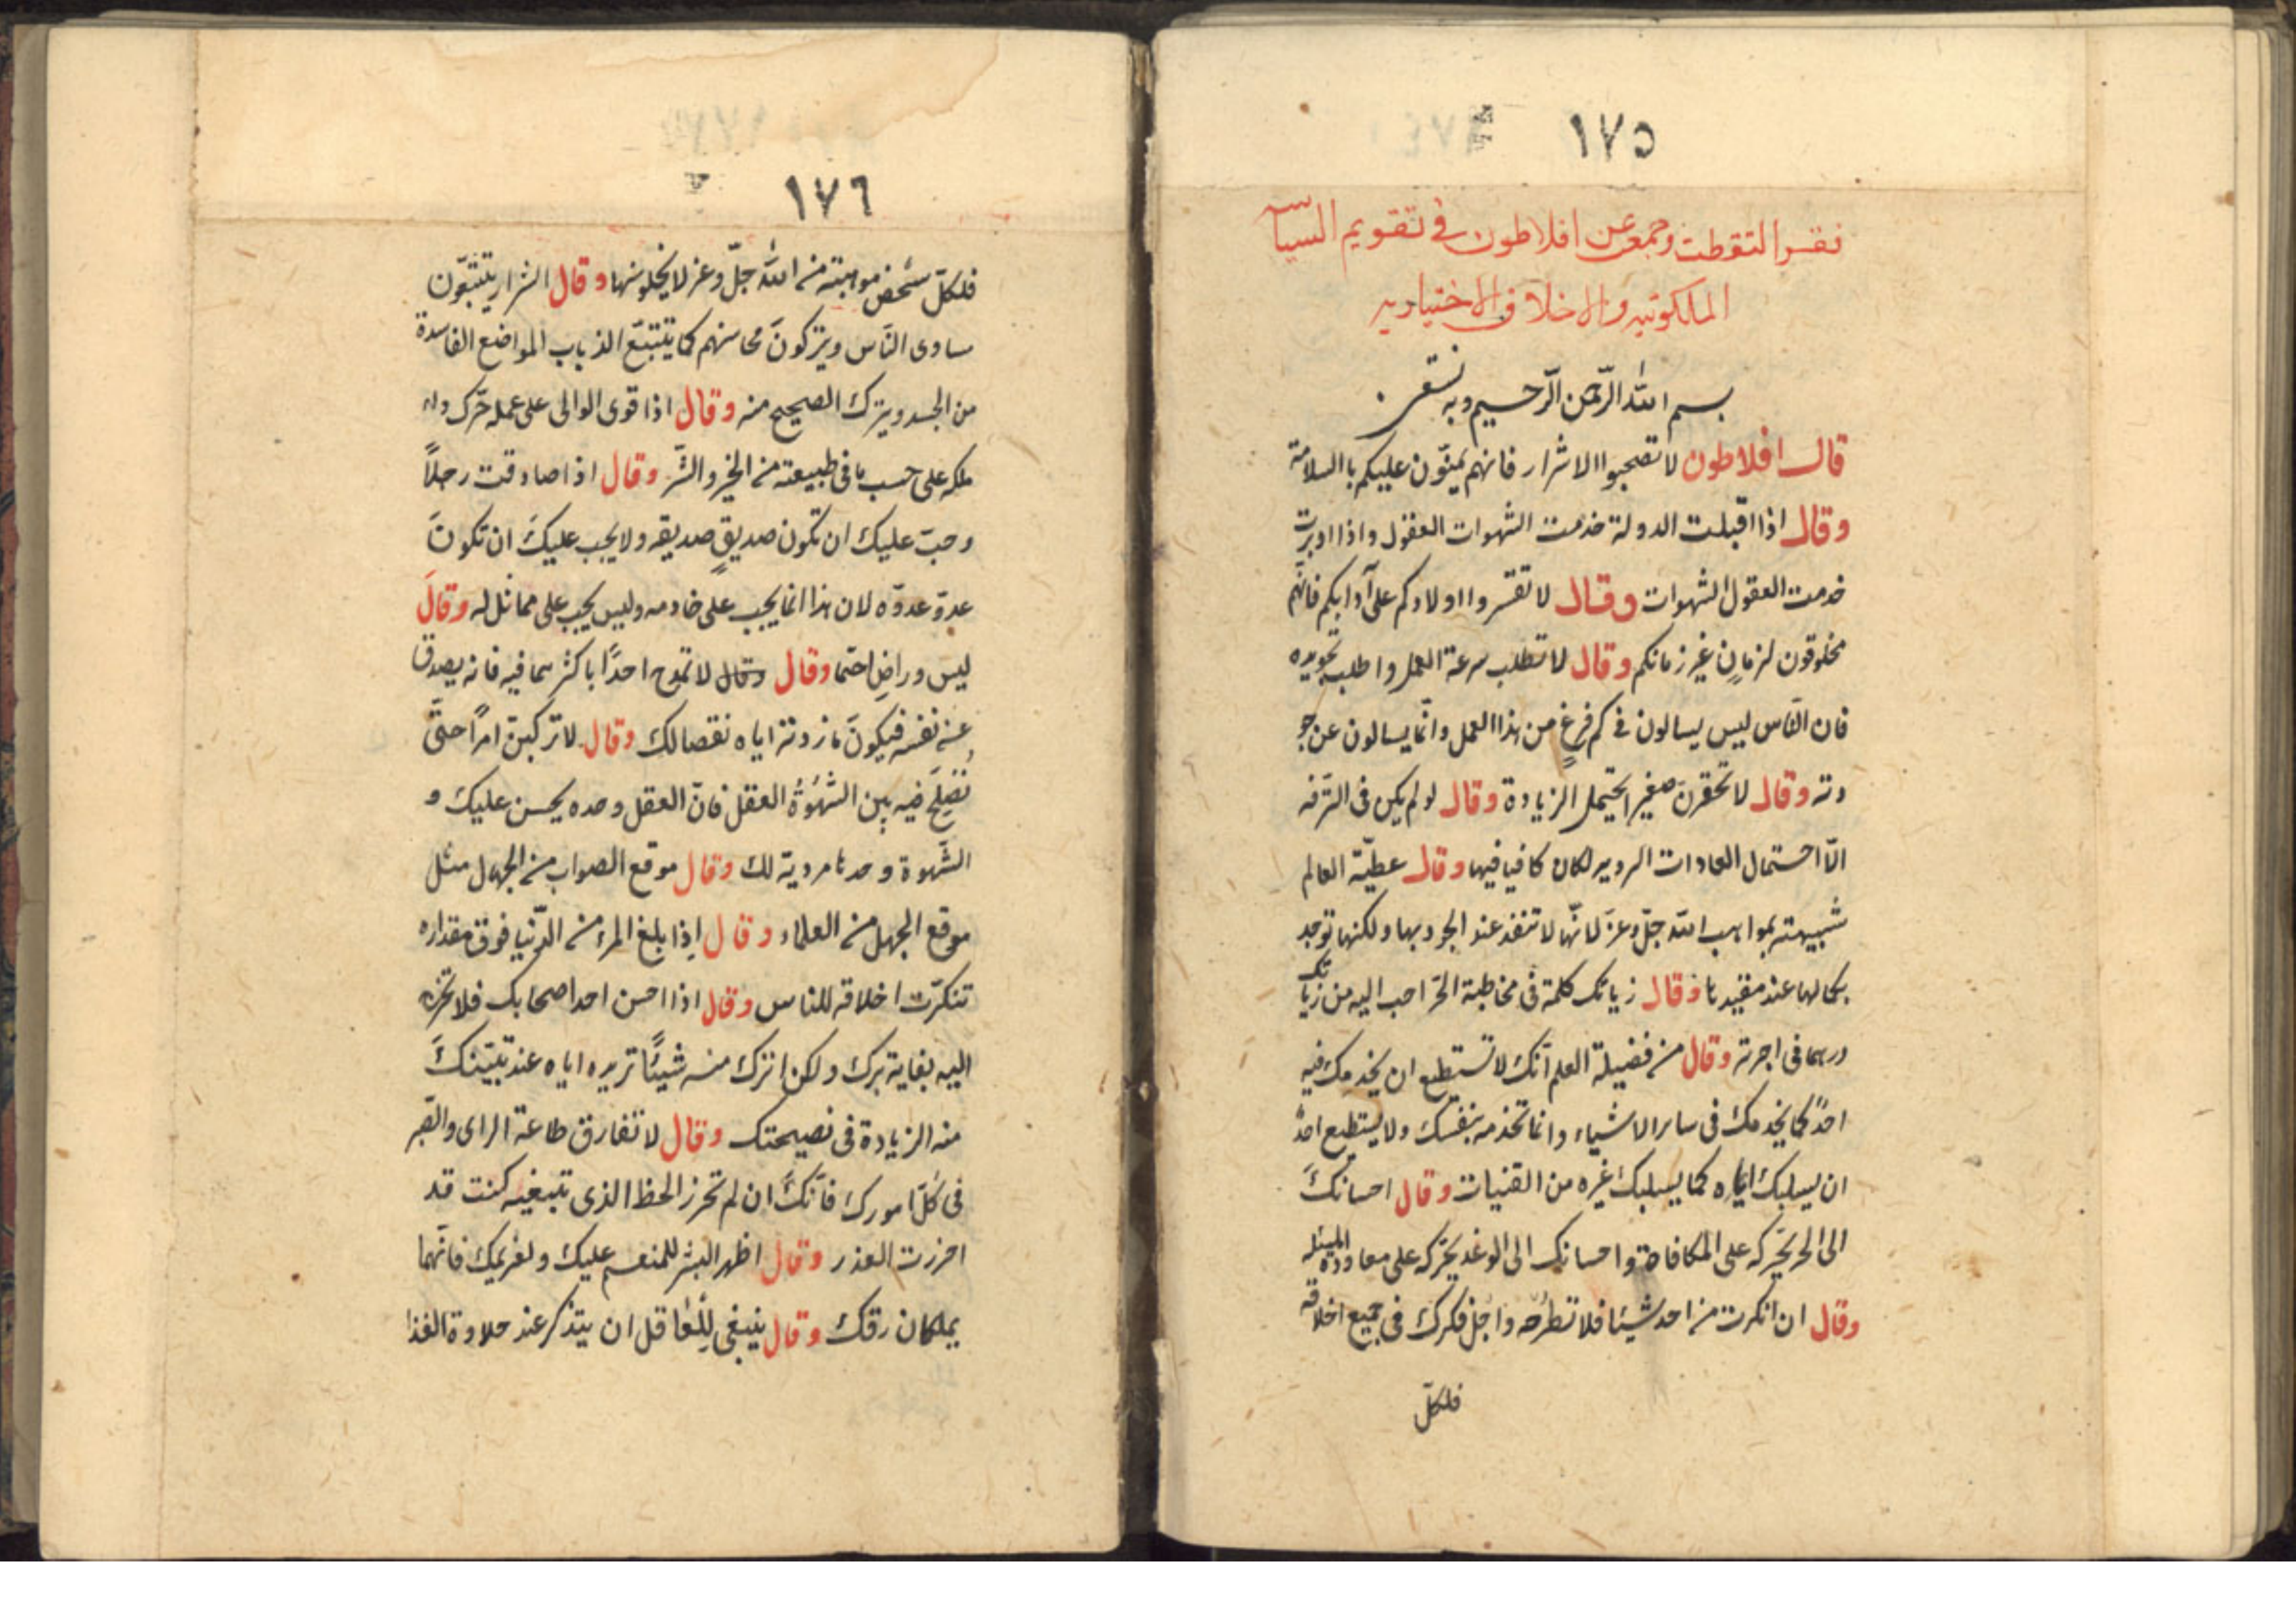 ١٧٥
فقر التقطت وجمع عن افلاطون فى تقويم السياسه
الملكوتيه والاخلاق الاختياريه
بسم الله الرّحمن الرّحيم وبه نستعين
قال افلاطون لا تصحبوا الاشرار فانهم يمنّون عليكم بالسلامة
وقال اذا اقبلت الدولة خدمت الشهوات العقول واذا ادبرت
خدمت العقول الشهوات وقال لا تقسروا اولادكم على آدابكم فانّهم
مخلوقون لزمانٍ غير زمانكم وقال لا تطلب سرعة العمل واطلب تجويده
فان النّاس ليس يسالون فى كم فرغ من هذا العمل وانّما يسالون عن جو
دته وقال لا تحقرنّ صغيرا يحتمل الزيادة وقال لو لم يكن فى الترفه
الّا احتمال العادات الرديه لكان كافيا فيها وقال عطيّة العالم
شبيهته بمواهب الله جلّ وعزّ لانّها لا تنفذ عند الجود بها ولكنها توجد
بكمالها عند مفيدها وقال زيادتك كلمة فى مخاطبة الحرّ احب اليه من زيادتك
درهما فى اجرته وقال من فضيلة العلم انّك لا تستطيع ان يخدمك فيه
احدٌ كما يخدمك فى ساير الاشياء وانما تخدمه بنفسك ولا يستطيع احدٌ
ان يسلبك ايّاه كما يسلبك غيره من القنيات وقال احسانكَ
الى الحر يحرّكه على المكافاة واحسانك الى الوغد يحرّكه على معاودة المسئله
وقال ان انكرت من احد شيئا فلا تطرحه واجِل فكرك فى جميع اخلاقه
فلكلّ
١٧٦
فلكلّ شخص موهبته من الله جلّ وعز لا يخلو منها وقال الشرار يتتبّعون
مساوى النّاس ويتركونَ محاسنهم كما يتتبّع الذباب المواضع الفاسدة
من الجسد ويترك الصحيح منه وقال اذا قوى الوالى على عمله حرّك
ملكه على حسب ما فى طبيعته من الخير والشّر وقال اذا صادقت رجلاً
وجبَ عليك ان تكون صديق صديقه ولا يجب عليكَ ان تكونَ
عدوّ عدوّه لان هذا انما يجب على خادمه وليس يجب على مماثل له وقالَ
ليس وراضٍ احتما وقال وقال لا تمدح احدًا باكثر مما فيه فانه يصدق
عن نفسه فيكونَ ما زدته اياه نقصا لك وقال لا تركبنّ امرًا حتّى
تُصلِحَ فيه بين الشهوة العقل فانّ العقل وحده يحسن عليك و
الشّهوة وحدها مردية لك وقال موقع الصواب من الجهال مثل
موقع الجهل من العلماء وقال اِذا بلغ المرء من الدّنيا فوق مقداره
تنكرّت اخلاقه للناس وقال اذا احسن احد اصحابك فلا تخرج
اليه بغاية برك ولكن اترك منه شيئًا تزيده اياه عند تبيّنكَ
منه الزيادة فى نصيحتك وقال لا تفارق طاعة الراى والصّبر
فى كلّ امورك فانّك ان لم تحرز الحظ الذى تبتغيه كنت قد
احرزت العذر وقال اظهر البشر للمنعم عليك ولغريمك فانّهما
يملكان رقك وقال ينبغى لِلعاقل ان يتذكر عند حلاوة الغذا